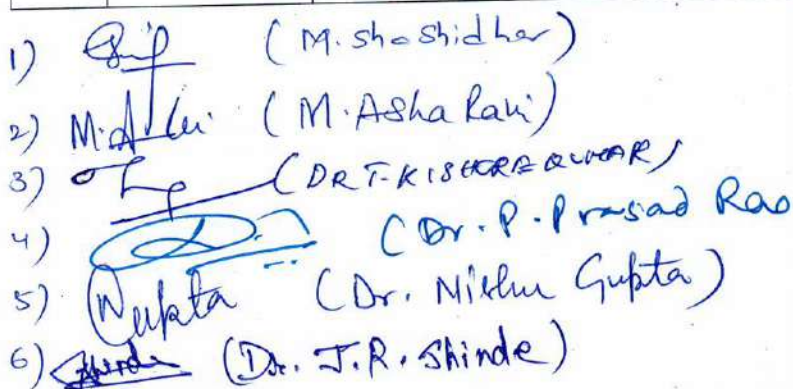 1) (M. Shashidhar)
2) M. (M. Asha Rani)
3) (DR T. KISHORE KUMAR)
4) (Dr. P. Prasad Rao
5) Gupta (Dr. Nishu Gupta)
6) Shinde (Dr. J.R. Shinde)